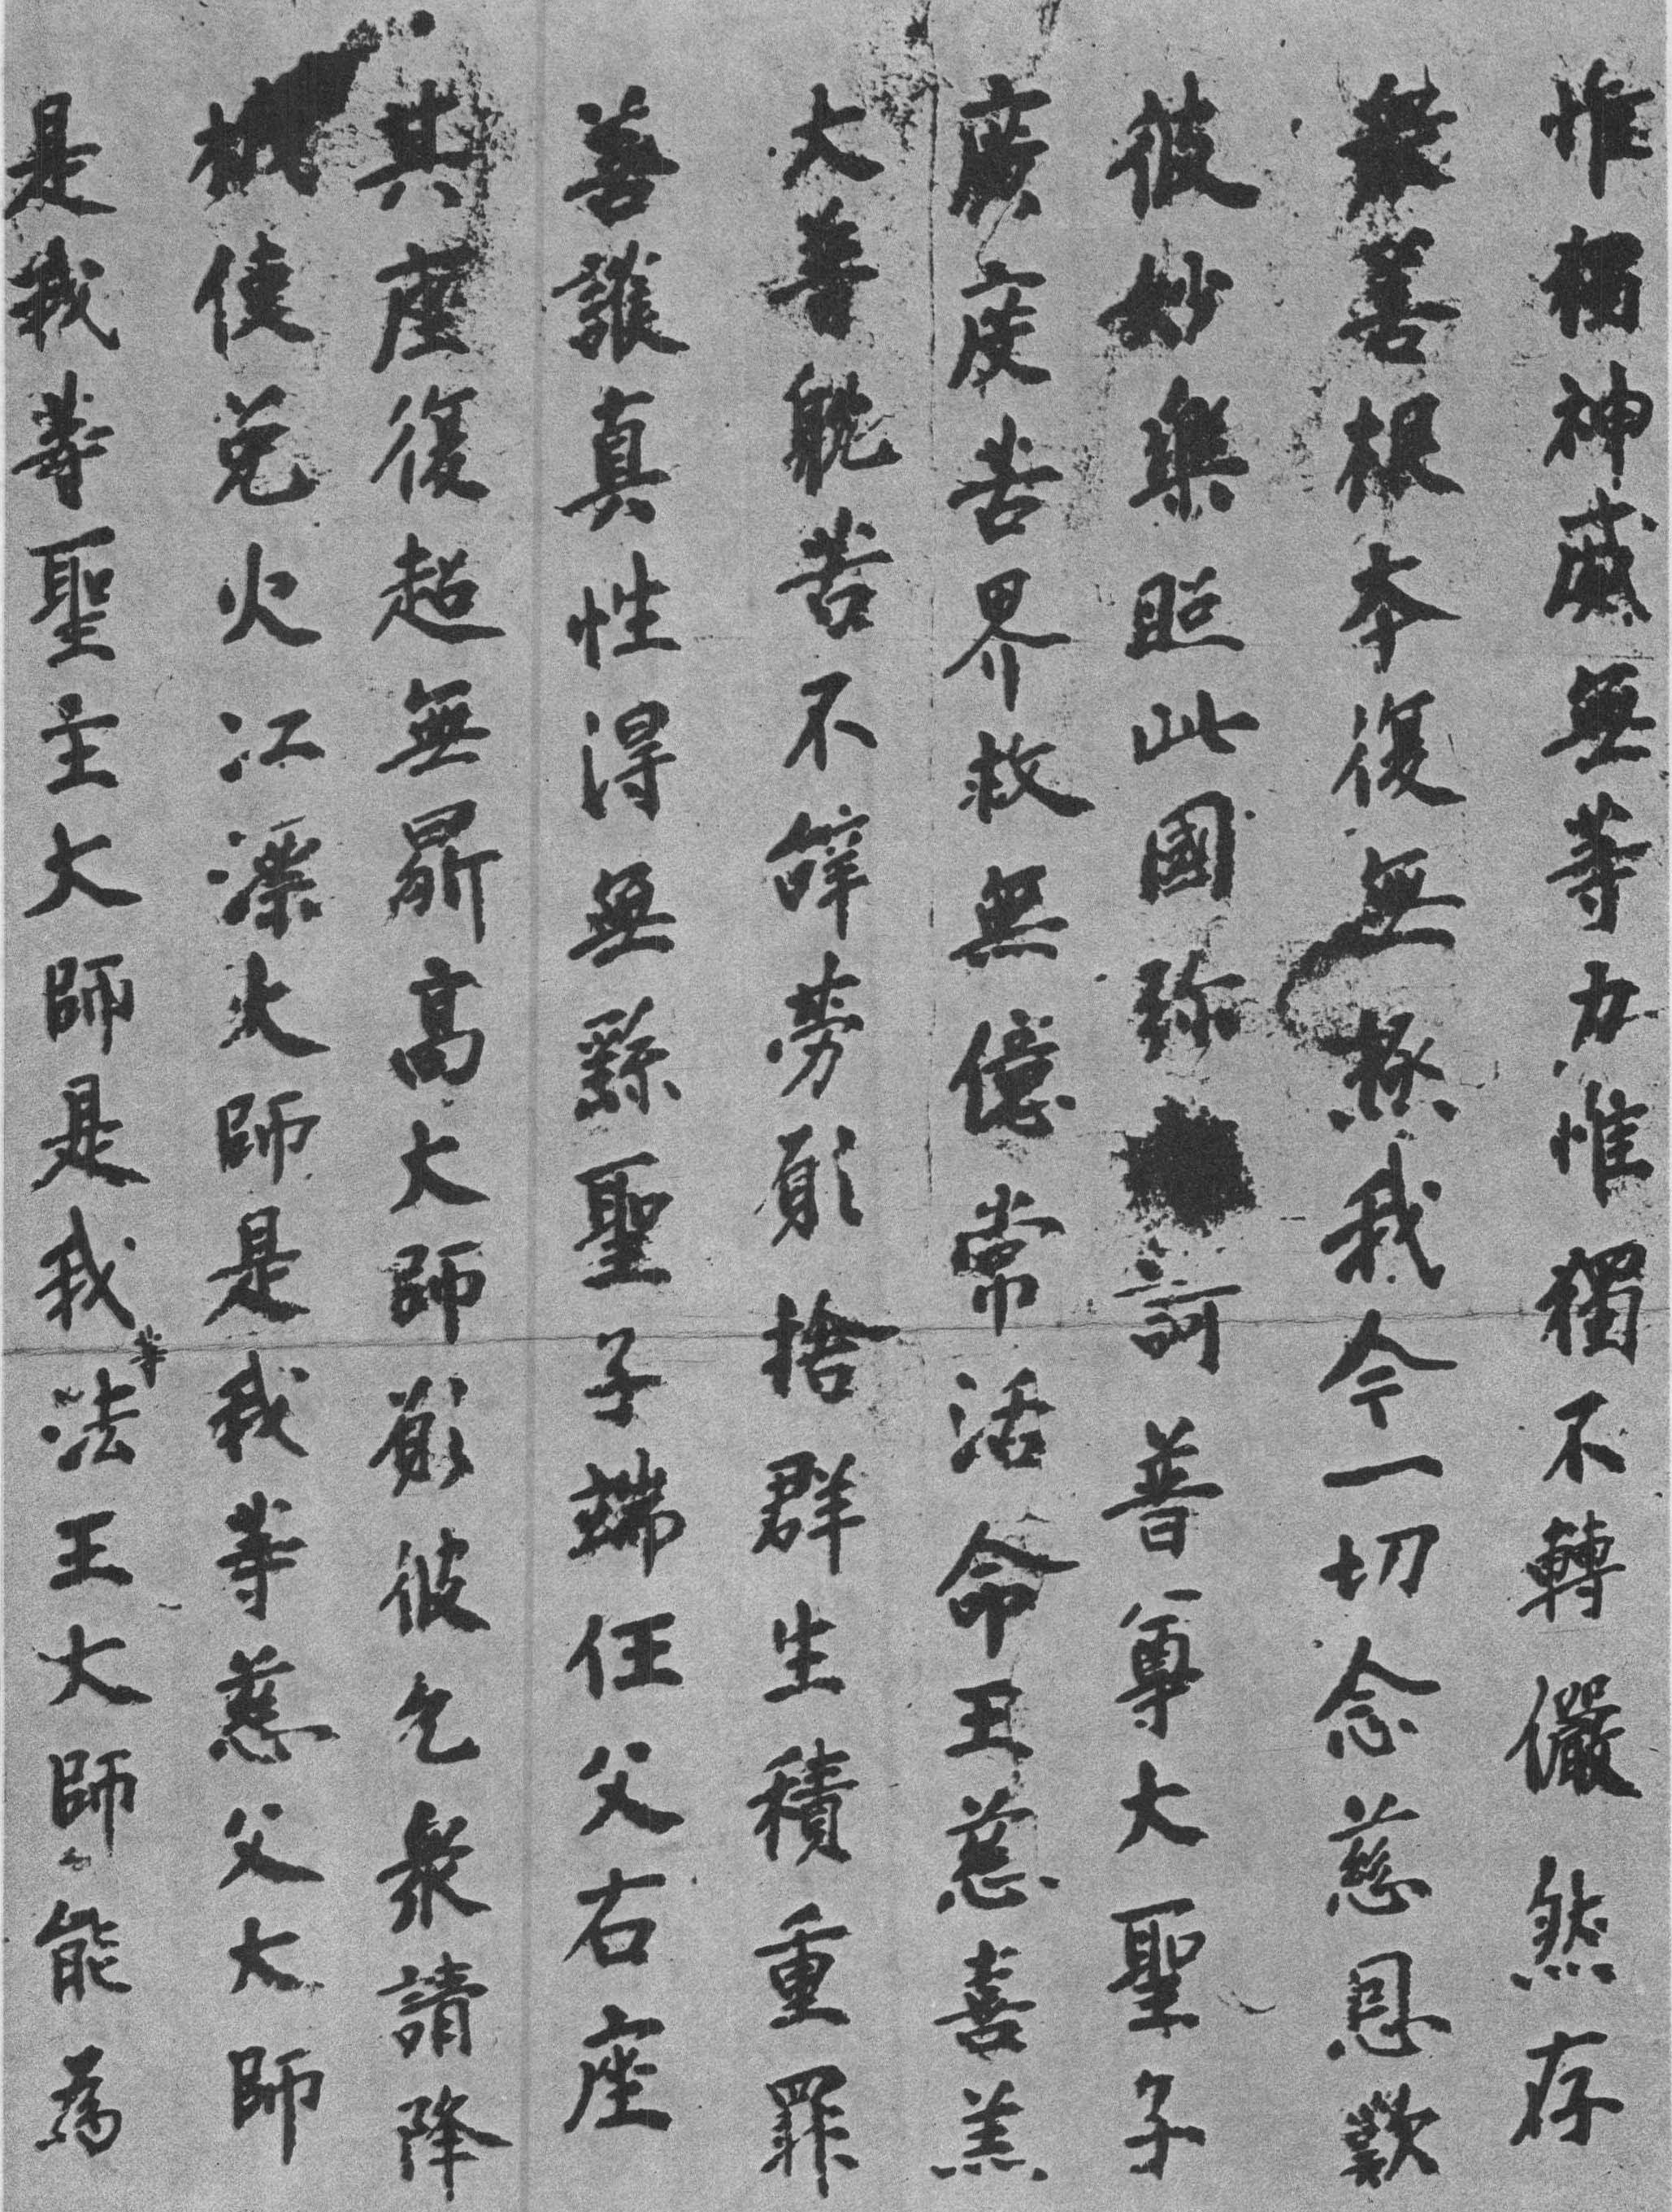 惟獨神威無等力惟獨不轉儼然存
衆善根本復無極我今一切念慈恩歎
彼妙樂照此國弥訶普尊大聖子
廣度苦界救無億常活命王慈喜羔
大普耽苦不辭勞願捨群生積重罪
善護真性得無繇聖子端任父右座
其座復超無鼎高大師願彼乞衆請降
栰使免火江漂大師是我等慈父大師
是我等聖主大師是我等法王大師能為